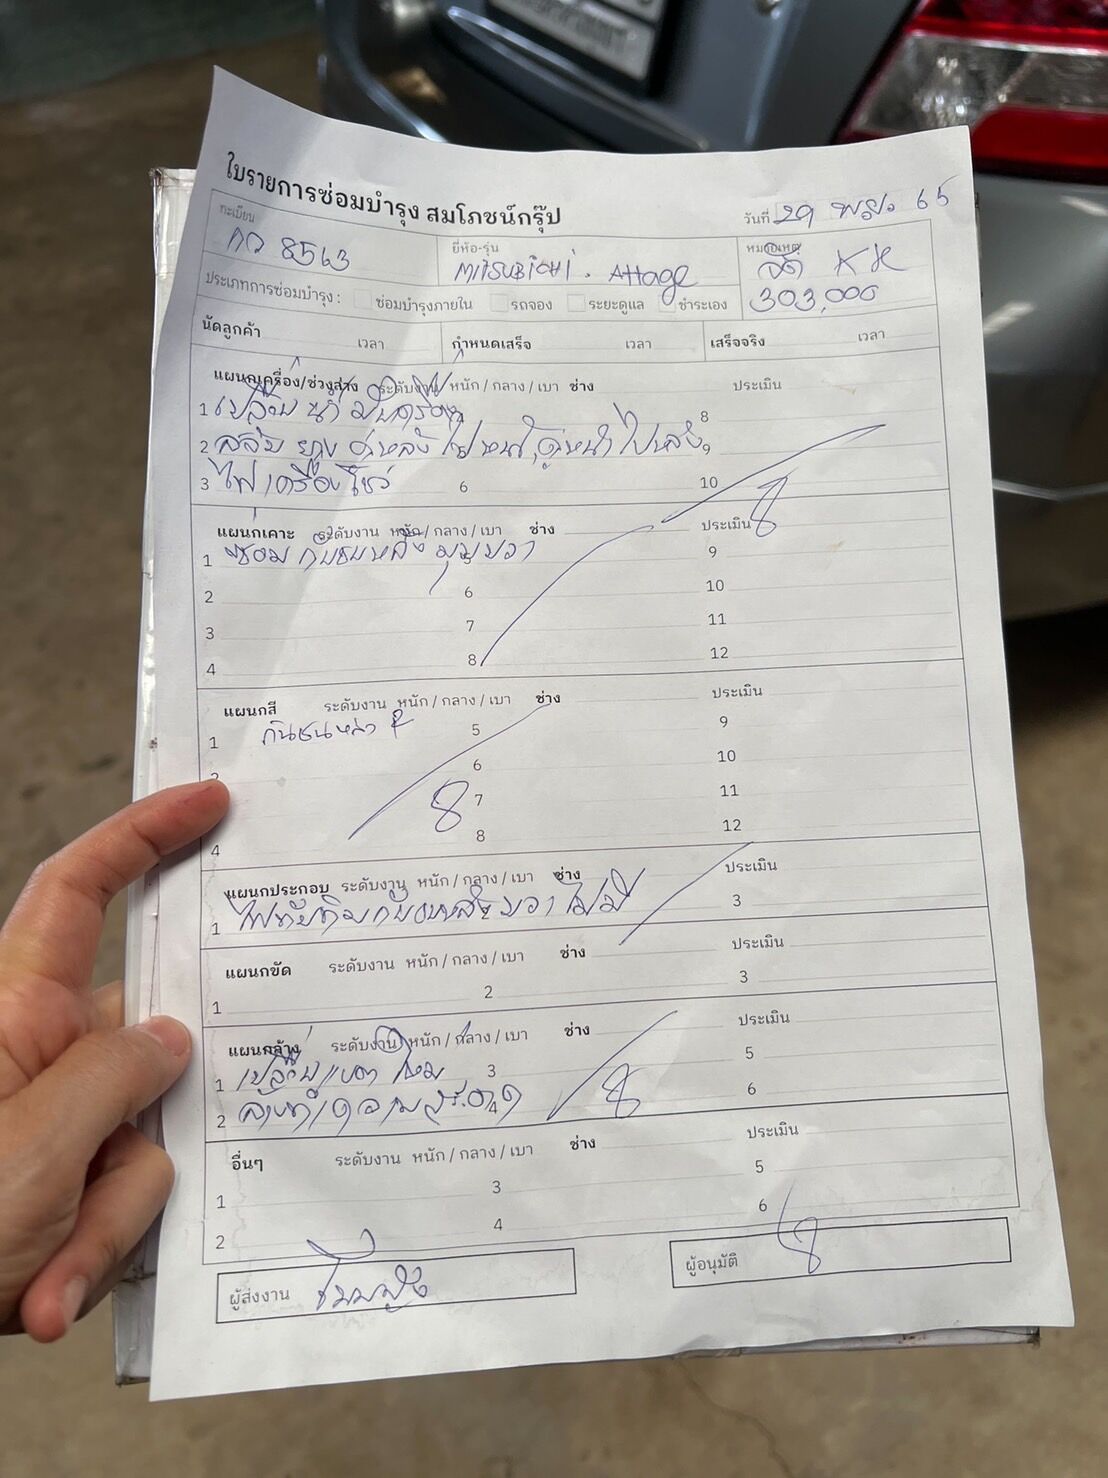 ใบรายการซ่อมบำรุง สมโภชน์กรุ๊ป
วันที่ 29 พ.ย. 65
ทะเบียน
ยี่ห้อ-รุ่น
หมายเหตุ
กว 8563
MITSUBICHI. Attage
303,000
ประเภทการซ่อมบำรุง : ซ่อมบำรุงภายใน รถจอง ระยะดูแล ชำระเอง
นัดลูกค้า เวลา กำหนดเสร็จ เวลา เสร็จจริง เวลา
แผนกเครื่อง/ช่วงล่าง ระดับงาน หนัก / กลาง / เบา ช่าง ประเมิน
1 เปลี่ยนน้ำมันเครื่อง 8
2 สลับ ยาง คู่หลัง ไปหน้า, คู่หน้า ไปหลัง 9
3 ไฟเครื่องโชว์ 6 10
แผนกเคาะ ระดับงาน หนัก / กลาง / เบา ช่าง ประเมิน
1 ซ่อม กันชนหลัง มุมขวา 9
2 6 10
3 7 11
4 8 12
แผนกสี ระดับงาน หนัก / กลาง / เบา ช่าง ประเมิน
1 กันชนหลัง 5 9
2 6 10
7 11
4 8 12
แผนกประกอบ ระดับงาน หนัก / กลาง / เบา ช่าง ประเมิน
1 ไฟทับทิมกันชนหลังขวา ไม่มี 3
แผนกขัด ระดับงาน หนัก / กลาง / เบา ช่าง ประเมิน
1 2 3
แผนกล้าง ระดับงาน หนัก / กลาง / เบา ช่าง ประเมิน
1 3 5
2 ล้างทำความสะอาด 4 6
อื่นๆ ระดับงาน หนัก / กลาง / เบา ช่าง ประเมิน
1 3 5
2 4 6
ผู้ส่งงาน
ผู้อนุมัติ